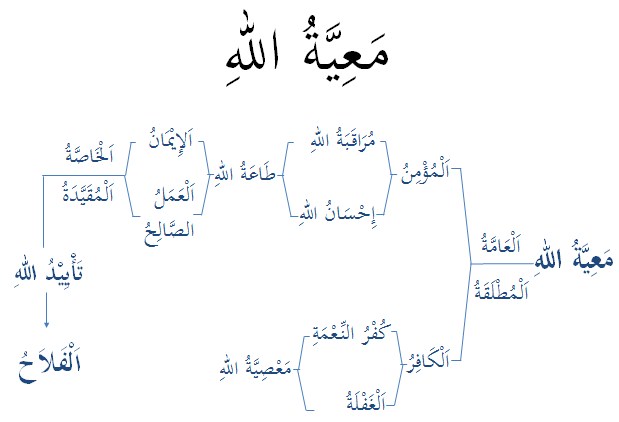 مَعِيَّةُ اللهِ
مَعِيَّةُ اللهِ
اَلْعَامَّةُ
اَلْمُطْلَقَةُ
اَلْمُؤْمِنُ
مُرَاقَبَةُ اللهِ
إِحْسَانُ اللهِ
طَاعَةُ اللهِ
اَلإِيْمَانُ
اَلْعَمَلُ
الصَّالِحُ
اَلْخَاصَّةُ
اَلْمُقَيَّدَةُ
تَأْيِيْدُ اللهِ
اَلْفَلاَحُ
اَلْكَافِرُ
كُفْرُ النِّعْمَةِ
اَلْغَفْلَةُ
مَعْصِيَّةُ اللهِ